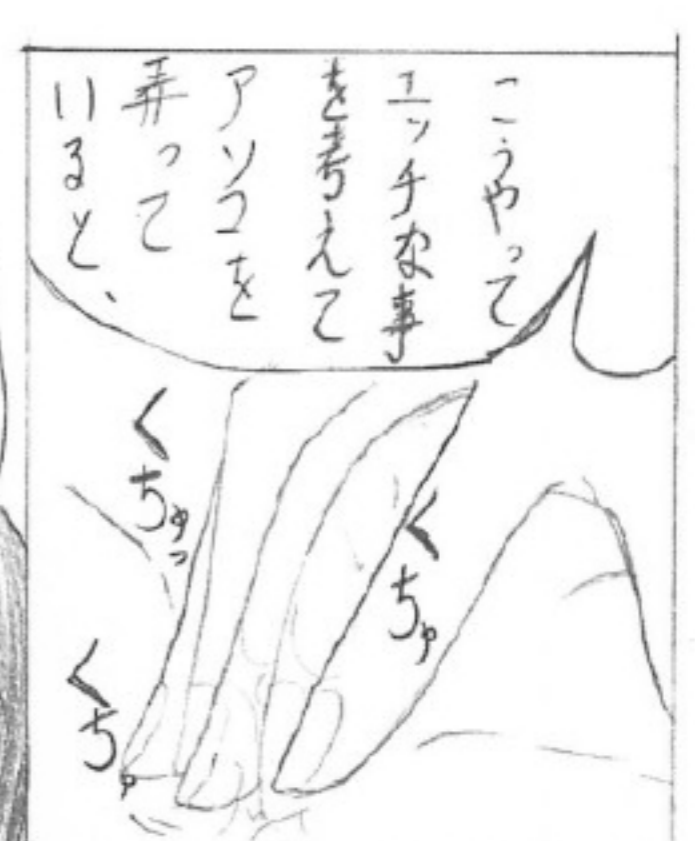 こうやって
エッチな事
を考えて
アソコを
弄って
いると、
くちゅ
くちゅっ
くちゅ